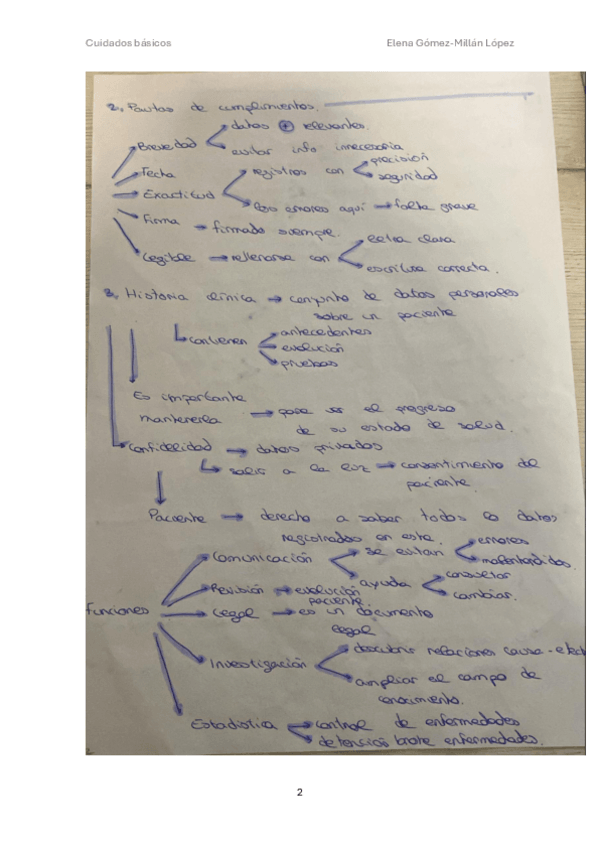 Cuidados básicos Elena Gómez-Millán López
2. Pautas de cumplimientos.
datos + relevantes.
Brevedad
evitar info innecesaria
Fecha
registros con precisión
seguridad
Exactitud
los errores aquí → falta grave
Firma → firmado siempre.
letra clara
Legible → rellenarse con
escritura correcta.
3. Historia clínica → conjunto de datos personales
sobre un paciente
antecedentes
contienen evolución
pruebas
Es importante
mantenerla → para ver el progreso
de su estado de salud.
Confidelidad → datos privados
salir a la luz → consentimiento del
paciente.
Paciente → derecho a saber todos los datos
registrados en esta.
errores
Comunicación se evitan
malentendidos.
ayuda consultar
cambiar.
Revisión → evolución
paciente.
Funciones Legal → es un documento
legal
descubrir relaciones causa-efect
Investigación
ampliar el campo de
conocimiento.
Estadística → control de enfermedades
brote enfermedades.
2